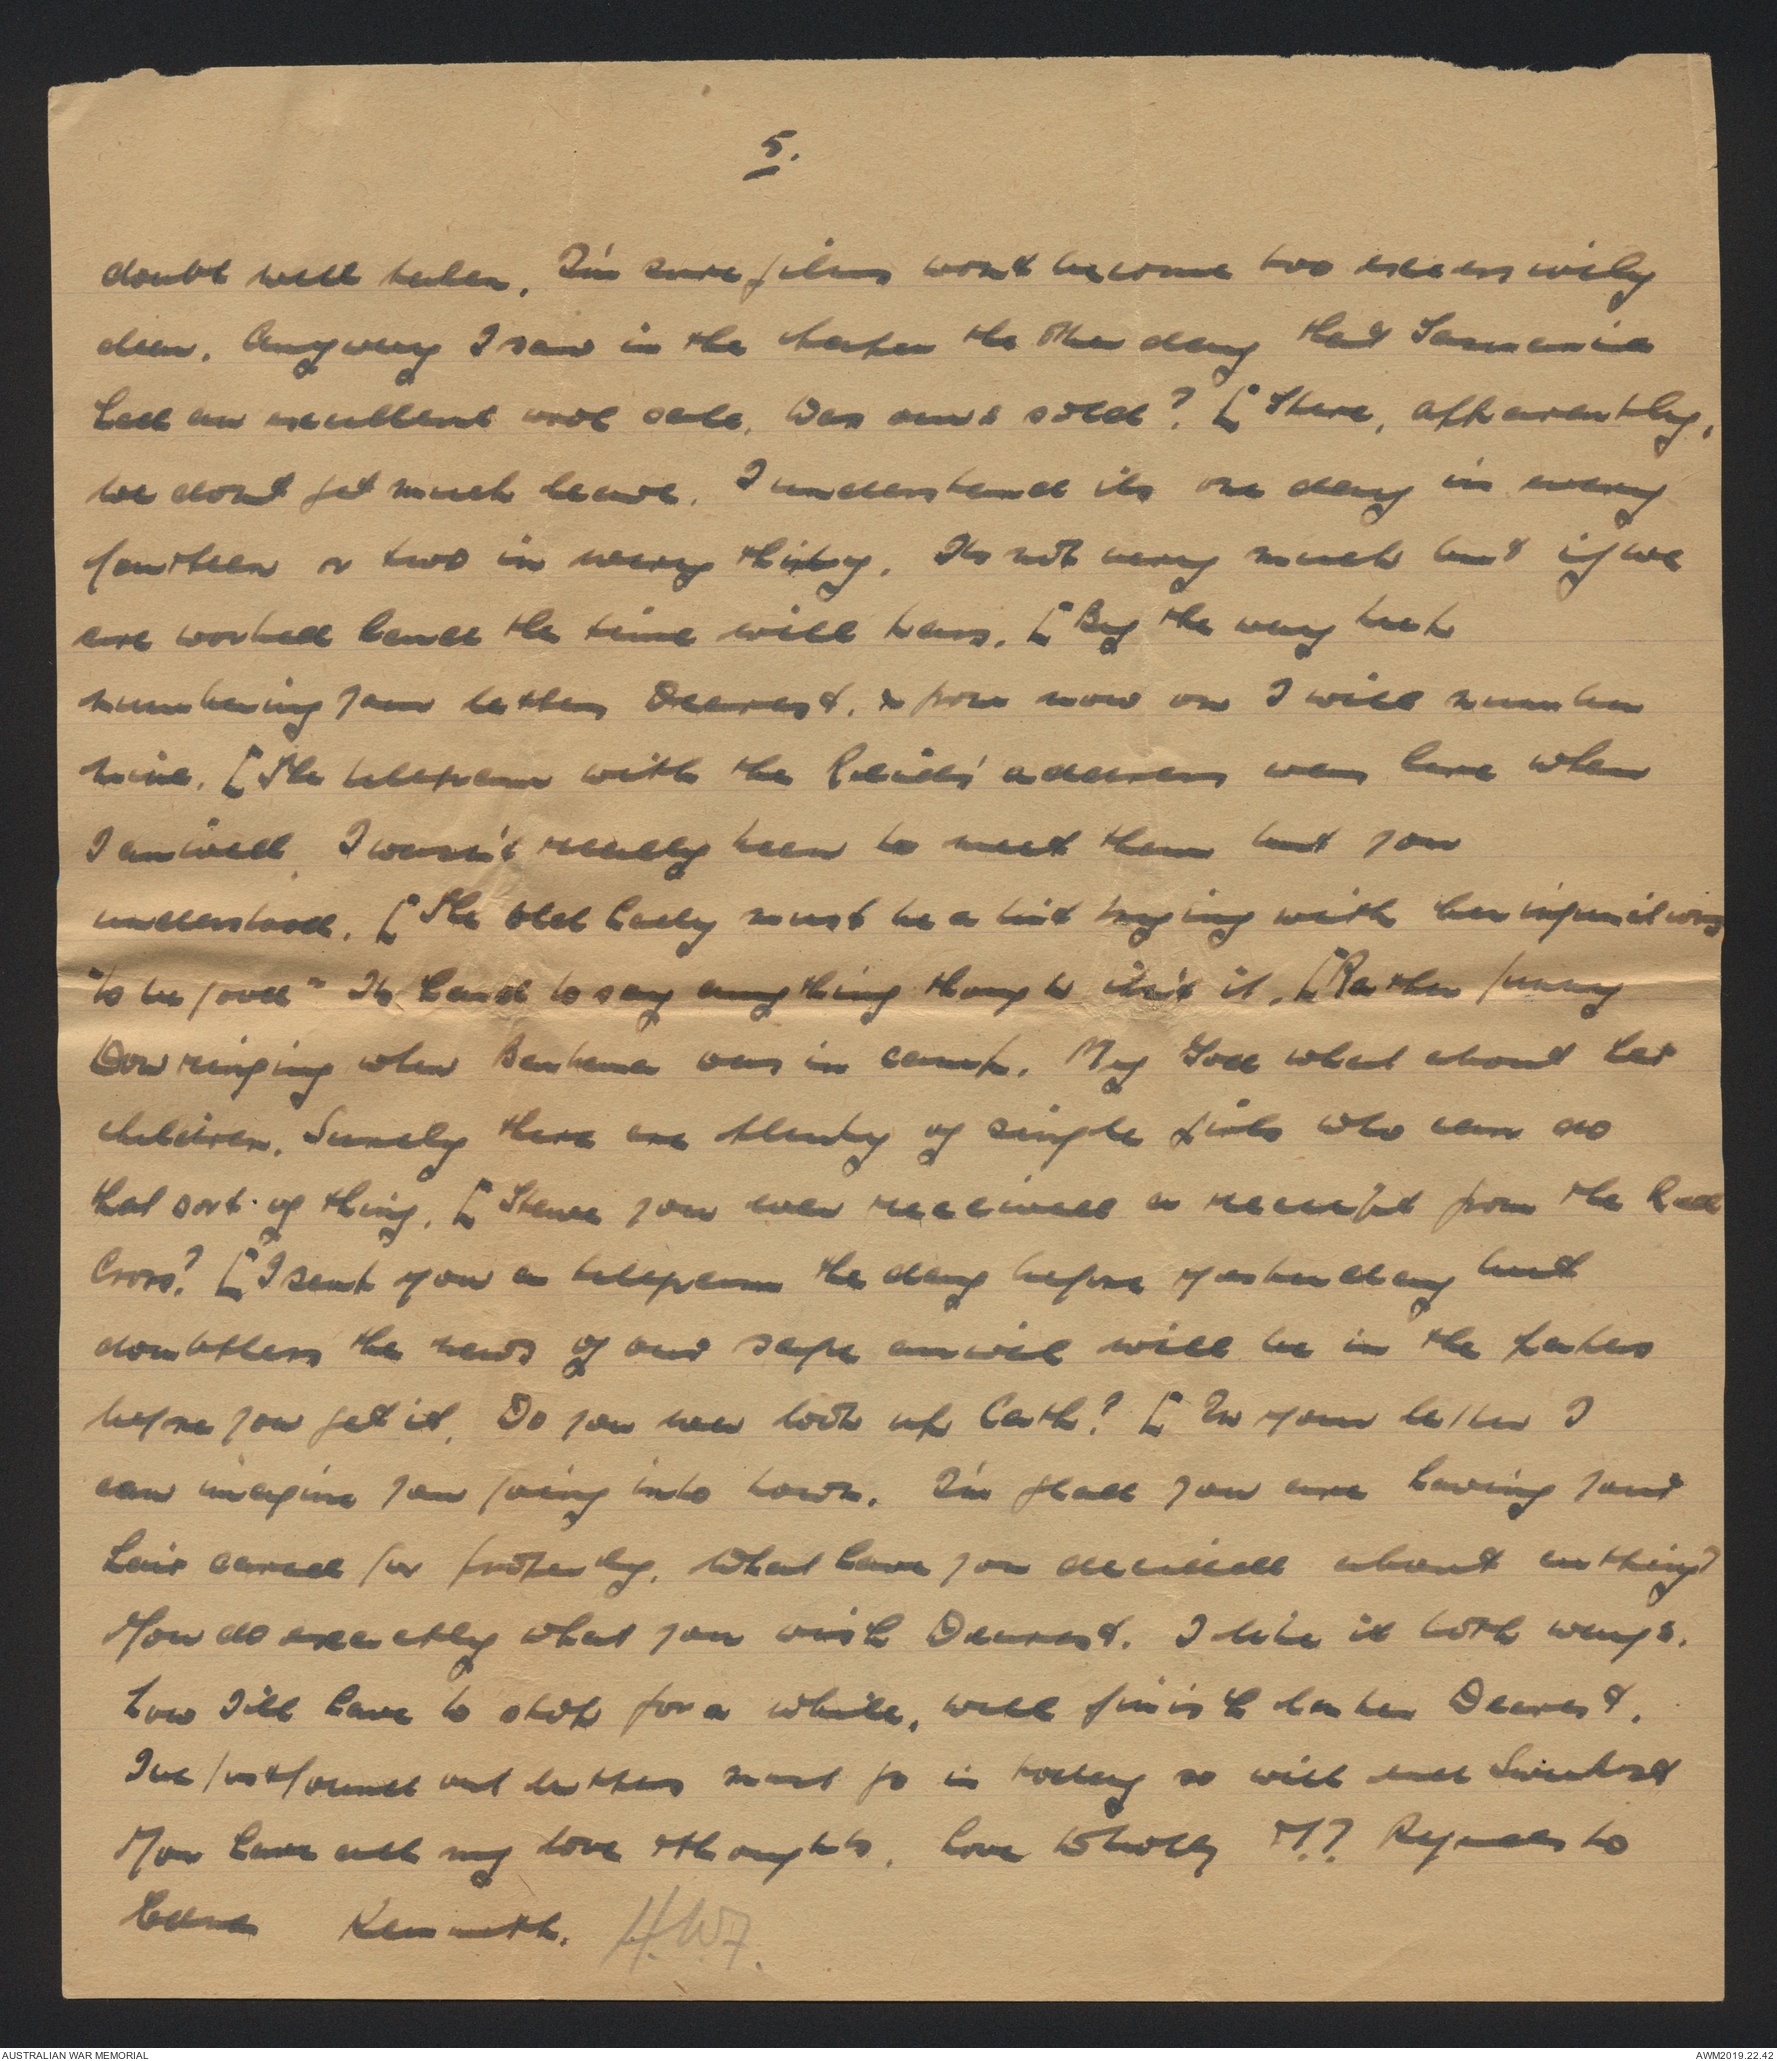 5.
doubt well taken. I'm sure films won't become too excessively
dear. Anyway I saw in the paper the other day that Tasmania
had an excellent wool sale. Was ours sold? [ Here, apparently,
we dont get much leave. I understand its one day in every
fourteen or two in every thirty. Its not very much but if we
are worked hard the time will pass. [ By the way
numbering your letters Dearest. & from now on I will number
mine. [ The telegram with the Reids' address was here when
I arrived. I wasn't really keen to meet them but you
understand. [ The old lady must be a bit trying with her
"to be food" Its hard to say anything though isn't it. [ Rather funny
Dow ringing when Barbara was in camp. My God what about her
children. Surely there are plenty of single girls who can do
that sort of thing. [ Have you ever received a receipt from the Red
Cross? [ I sent you a telegram the day before yesterday but
doubtless the news of our safe arrival will be in the papers
before you get it. Do you ever look up Cath? [ In your letter I
can imagine you going into town. I'm glad you are having your
hair cared for properly. What have you decided about cutting?
You do exactly what you wish Dearest. I like it both ways.
Now I'll have to stop for a while, will finish later Dearest.
I've just found out letters must go in today so will end Sweetest
You have all my love & thoughts. Love Wholly M.? Regards to
Kenneth. H.W.F.
AUSTRALIAN WAR MEMORIAL
AWM2019.22.42